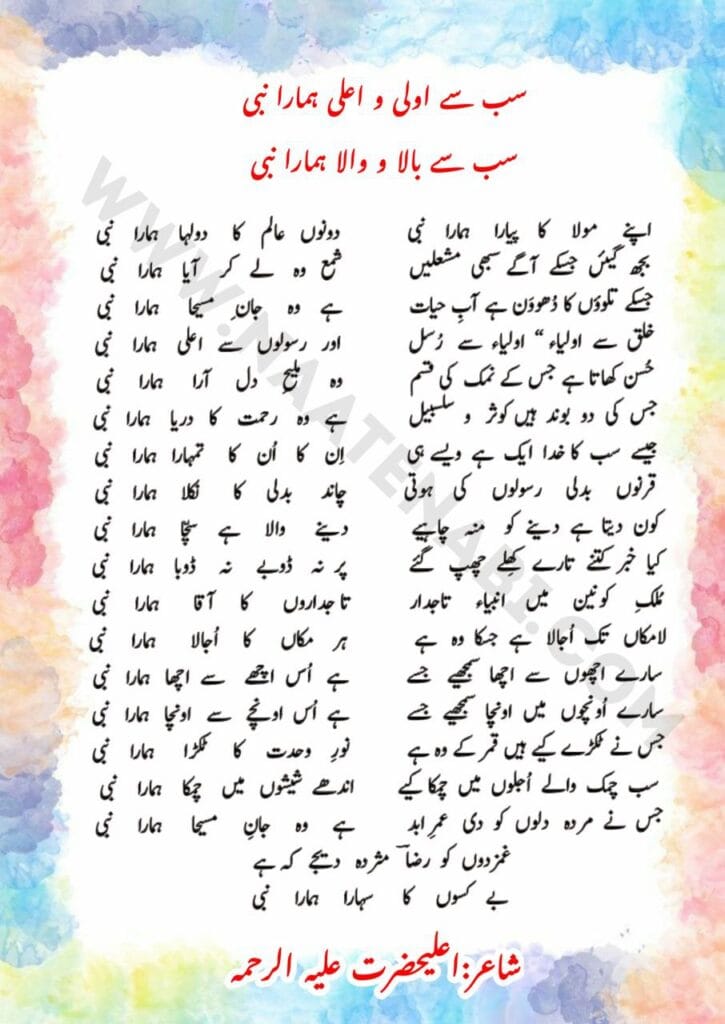 سب سے اولی و اعلی ہمارا نبی
سب سے بالا و والا ہمارا نبی
اپنے مولا کا پیارا ہمارا نبی دونوں عالم کا دولہا ہمارا نبی
بجھ گیئں جسکے آگے سبھی مشعلیں شمع وہ لے کر آیا ہمارا نبی
جسکے تلوؤں کا دُھووَن ہے آبِ حیات ہے وہ جانِ مسیحا ہمارا نبی
خلق سے اولیاء “ اولیاء سے رُسل اور رسولوں سے اعلی ہمارا نبی
حُسن کھاتا ہے جس کے نمک کی قسم وہ ملیحِ دل آرا ہمارا نبی
جس کی دو بوند ہیں کوثر و سلسبیل ہے وہ رحمت کا دریا ہمارا نبی
جیسے سب کا خدا ایک ہے ویسے ہی اِن کا اُن کا تمہارا ہمارا نبی
قرنوں بدلی رسولوں کی ہوتی چاند بدلی کا نکلا ہمارا نبی
کون دیتا ہے دینے کو منہ چاہیے دینے والا ہے سچّا ہمارا نبی
کیا خبر کتنے تارے کِھلے چھپ گئے پر نہ ڈوبے نہ ڈوبا ہمارا نبی
مُلکِ کونین میں انبیاء تاجدار تاجداروں کا آقا ہمارا نبی
لامکاں تک اُجالا ہے جسکا وہ ہے ہر مکاں کا اُجالا ہمارا نبی
سارے اچھوں سے اچھا سمجھیے جسے ہے اُس اچھے سے اچھا ہمارا نبی
سارے اُونچوں میں اونچا سمجھیے جسے ہے اُس اونچے سے اونچا ہمارا نبی
جس نے ٹکڑے کیے ہیں قمر کے وہ ہے نورِ وحدت کا ٹکڑا ہمارا نبی
سب چمک والے اُجلوں میں چمکا کیے اندھے شیشوں میں چمکا ہمارا نبی
جس نے مردہ دلوں کو دی عمرِ ابد ہے وہ جانِ مسیحا ہمارا نبی
غمزدوں کو رضاؔ مثردہ دیجے کہ ہے
بے کسوں کا سہارا ہمارا نبی
شاعر:اعلیحضرت علیہ الرحمہ
WWW.NAATENABI.COM